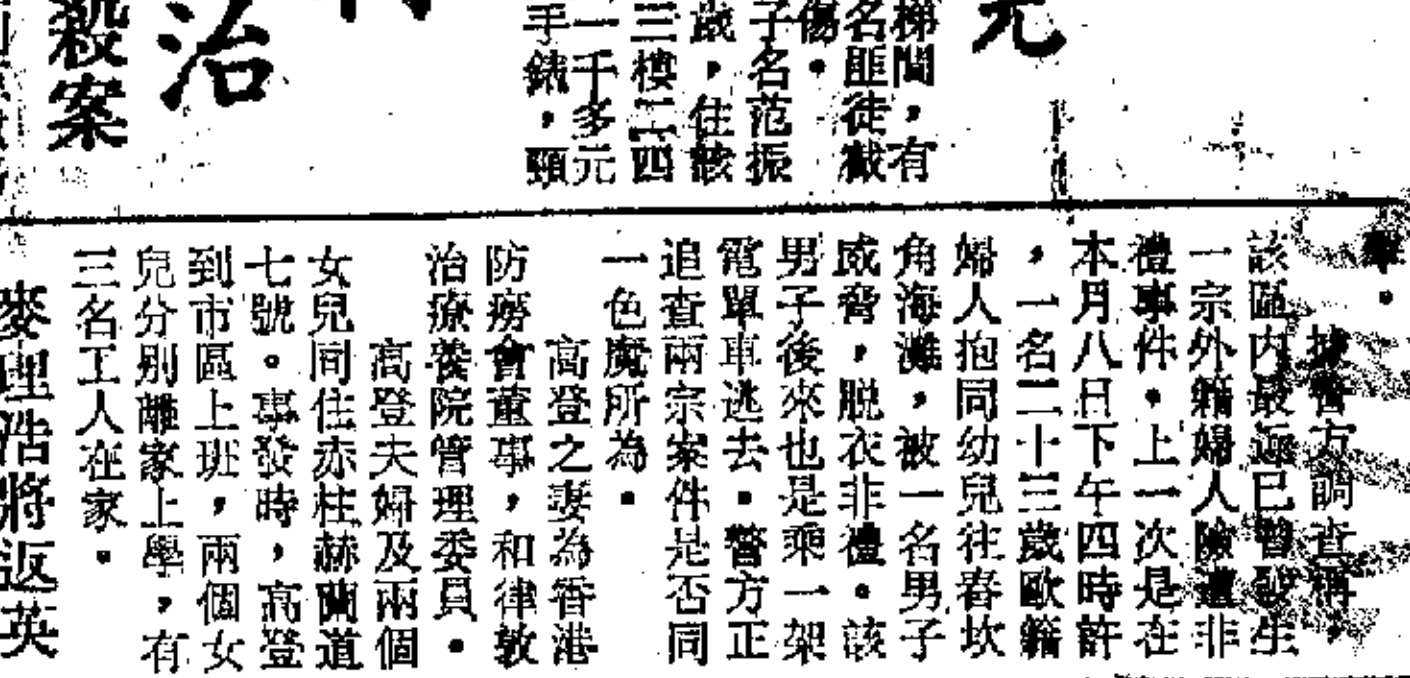 元
梯間，有
名匪徒截
傷。
子名范振
歲，住該
三樓二四
一千多元
手錶，頸
治
殺案
擊。
據警方調查稱，
該區內最近已曾發生
一宗外籍婦人險遭非
禮事件。上一次是在
本月八日下午四時許
，一名二十三歲歐籍
婦人抱同幼兒往春坎
角海灘，被一名男子
威脅，脫衣非禮。該
男子後來也是乘一架
電單車逃去。警方正
追查兩宗案件是否同
一色魔所為。
高登之妻為香港
防癆會董事，和律敦
治療養院管理委員。
高登夫婦及兩個
女兒同住赤柱赫蘭道
七號。事發時，高登
到市區上班，兩個女
兒分別離家上學，有
三名工人在家。
麥理浩將返英